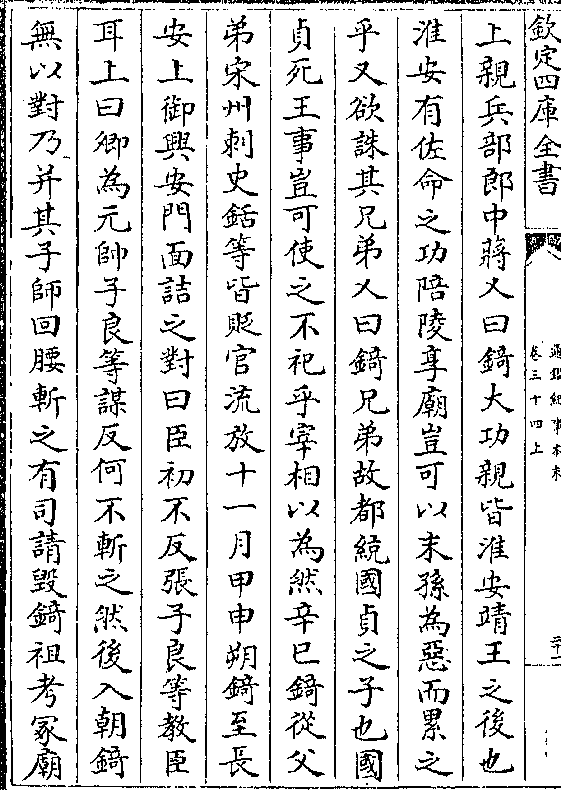 欽定四庫全書
通鑑紀事本末
卷三十四上
上親兵部郎中蔣乂曰錡大功親皆淮安靖王之後也
淮安有佐命之功陪陵享廟豈可以末孫為惡而累之
乎又欲誅其兄弟乂曰錡兄弟故都統國貞之子也國
貞死王事豈可使之不祀乎宰相以為然辛巳錡從父
弟宋州刺史銛等皆貶官流放十一月甲申朔錡至長
安上御興安門面詰之對曰臣初不反張子良等教臣
耳上曰卿為元帥子良等謀反何不斬之然後入朝錡
無以對乃并其子師回腰斬之有司請毀錡祖考冢廟